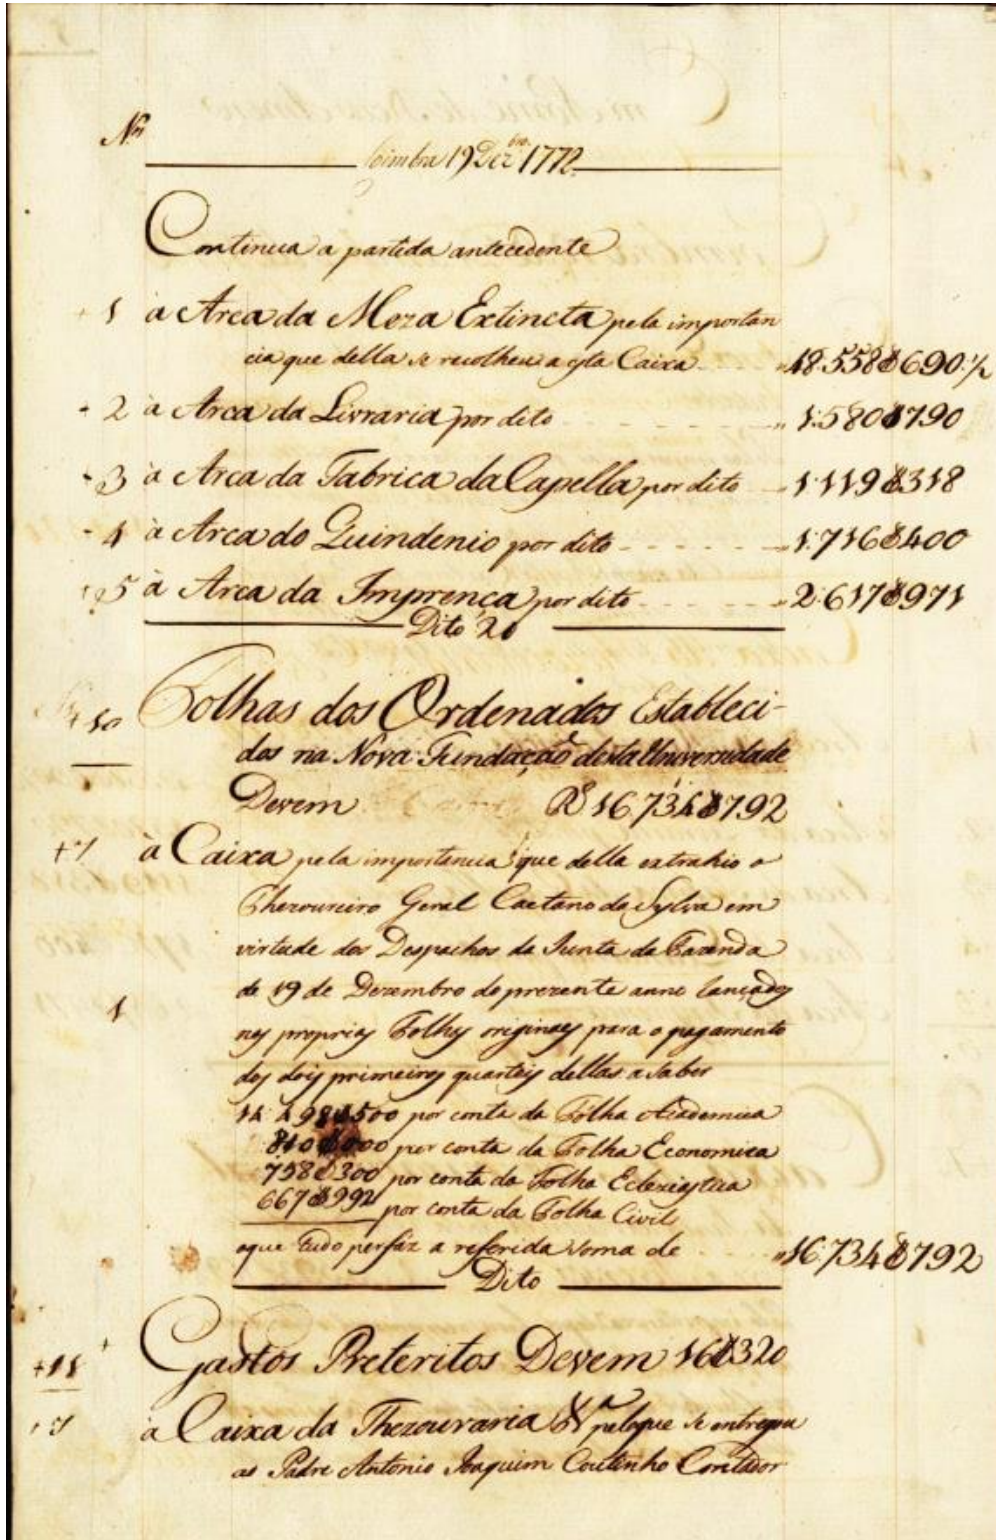 Nos
Coimbra 19 Dezbro. 1772
Continua a partida antecedente
1 à Arca da Meza Extincta pela importan
cia que della se recolheu a esta Caixa 48.558$690 ½
2 à Arca da Livraria por dito 1:580$790
3 à Arca da Fabrica da Capella por dito 1:119$318
4 à Arca do Quindenio por dito 1:716$400
5 à Arca da Imprença por dito 2:617$971
Dito 20
10 Folhas dos Ordenados Estableci-
dos na Nova Fundação desta Universidade
Devem R$ 16.734$792
à Caixa pela importancia que della extrahio o
Thezoureiro Geral Caetano da Sylva em
virtude dos Despachos da Junta da Fazenda
de 19 de Dezembro do prezente anno lançados
1 nas proprias Folhas originaes para o pagamento
dos dois primeiros quarteis dellas a saber
14:498$500 por conta da Folha Academica
810$000 por conta da Folha Economica
758$300 por conta da Folha Eclesiastica
667$992 por conta da Folha Civil
o que tudo perfáz a referida soma de 16:734$792
Dito
11 Gastos Preteritos Devem 16$320
à Caixa da Thezouraria pelo que se entregou
ao Padre Antonio Joaquim Coutinho Contador